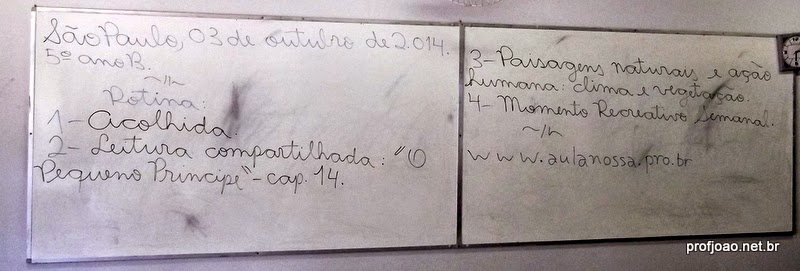 São Paulo, 03 de outubro de 2.014.
5º ano B.
~//~
Rotina:
1- Acolhida.
2- Leitura compartilhada: "O
Pequeno Príncipe" - cap. 14.
3- Paisagens naturais e ação
humana: clima e vegetação.
4- Momento Recreativo semanal.
~//~
www.aulanossa.pro.br
profjoao.net.br